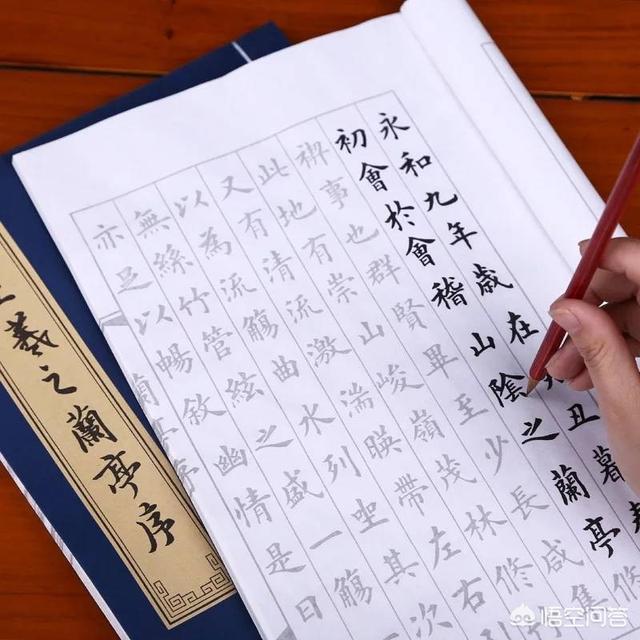 永和九年歲在癸丑暮春
初會於會稽山陰之蘭亭
禊事也群賢畢至少長咸集
此地有崇山峻嶺茂林修
又有清流激湍暎帶左右
以為流觴曲水列坐其次
無絲竹管絃之盛一觴
亦足以暢敘幽情是日
王羲之蘭亭序
悟空问答